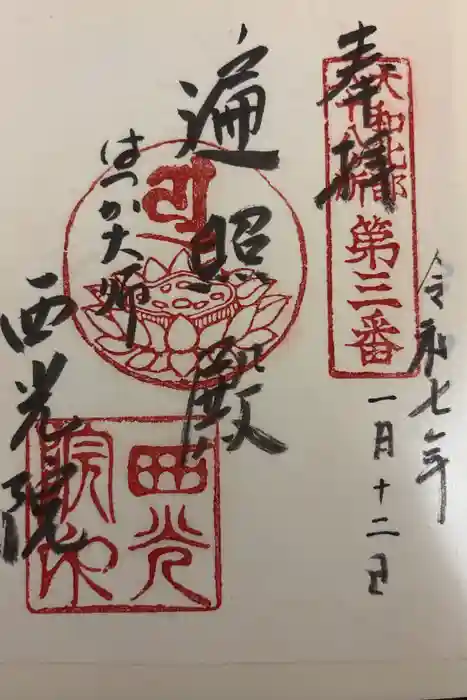 奉拝
大和北部
八十八ヶ所
第三番
令和七年
一月十二日
遍照殿
はつか大師
西光院
西光
院印